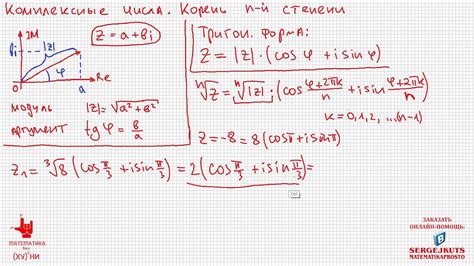 Комплексные числа. Корень n-й степени
Im
bi
|z|
z = a+bi
φ
0
a
Re
модуль |z|=√a²+b²
аргумент tg φ = b/a
Тригон. форма:
z = |z|·(cos φ + i sin φ)
ⁿ√z = ⁿ√|z|·(cos (φ+2πk)/n + i sin (φ+2πk)/n)
k = 0,1,2, ...,(n-1)
z = -8 = 8(cos π + i sin π)
z₁ = ³√8 (cos π/3 + i sin π/3) = 2(cos π/3 + i sin π/3) =
МАТЕМАТИКА
без
(ХУ)НИ
ЗАКАЗАТЬ
ОНЛАЙН-ПОМОЩЬ:
SERGEJKUTS
MATEMATIKAPROSTO